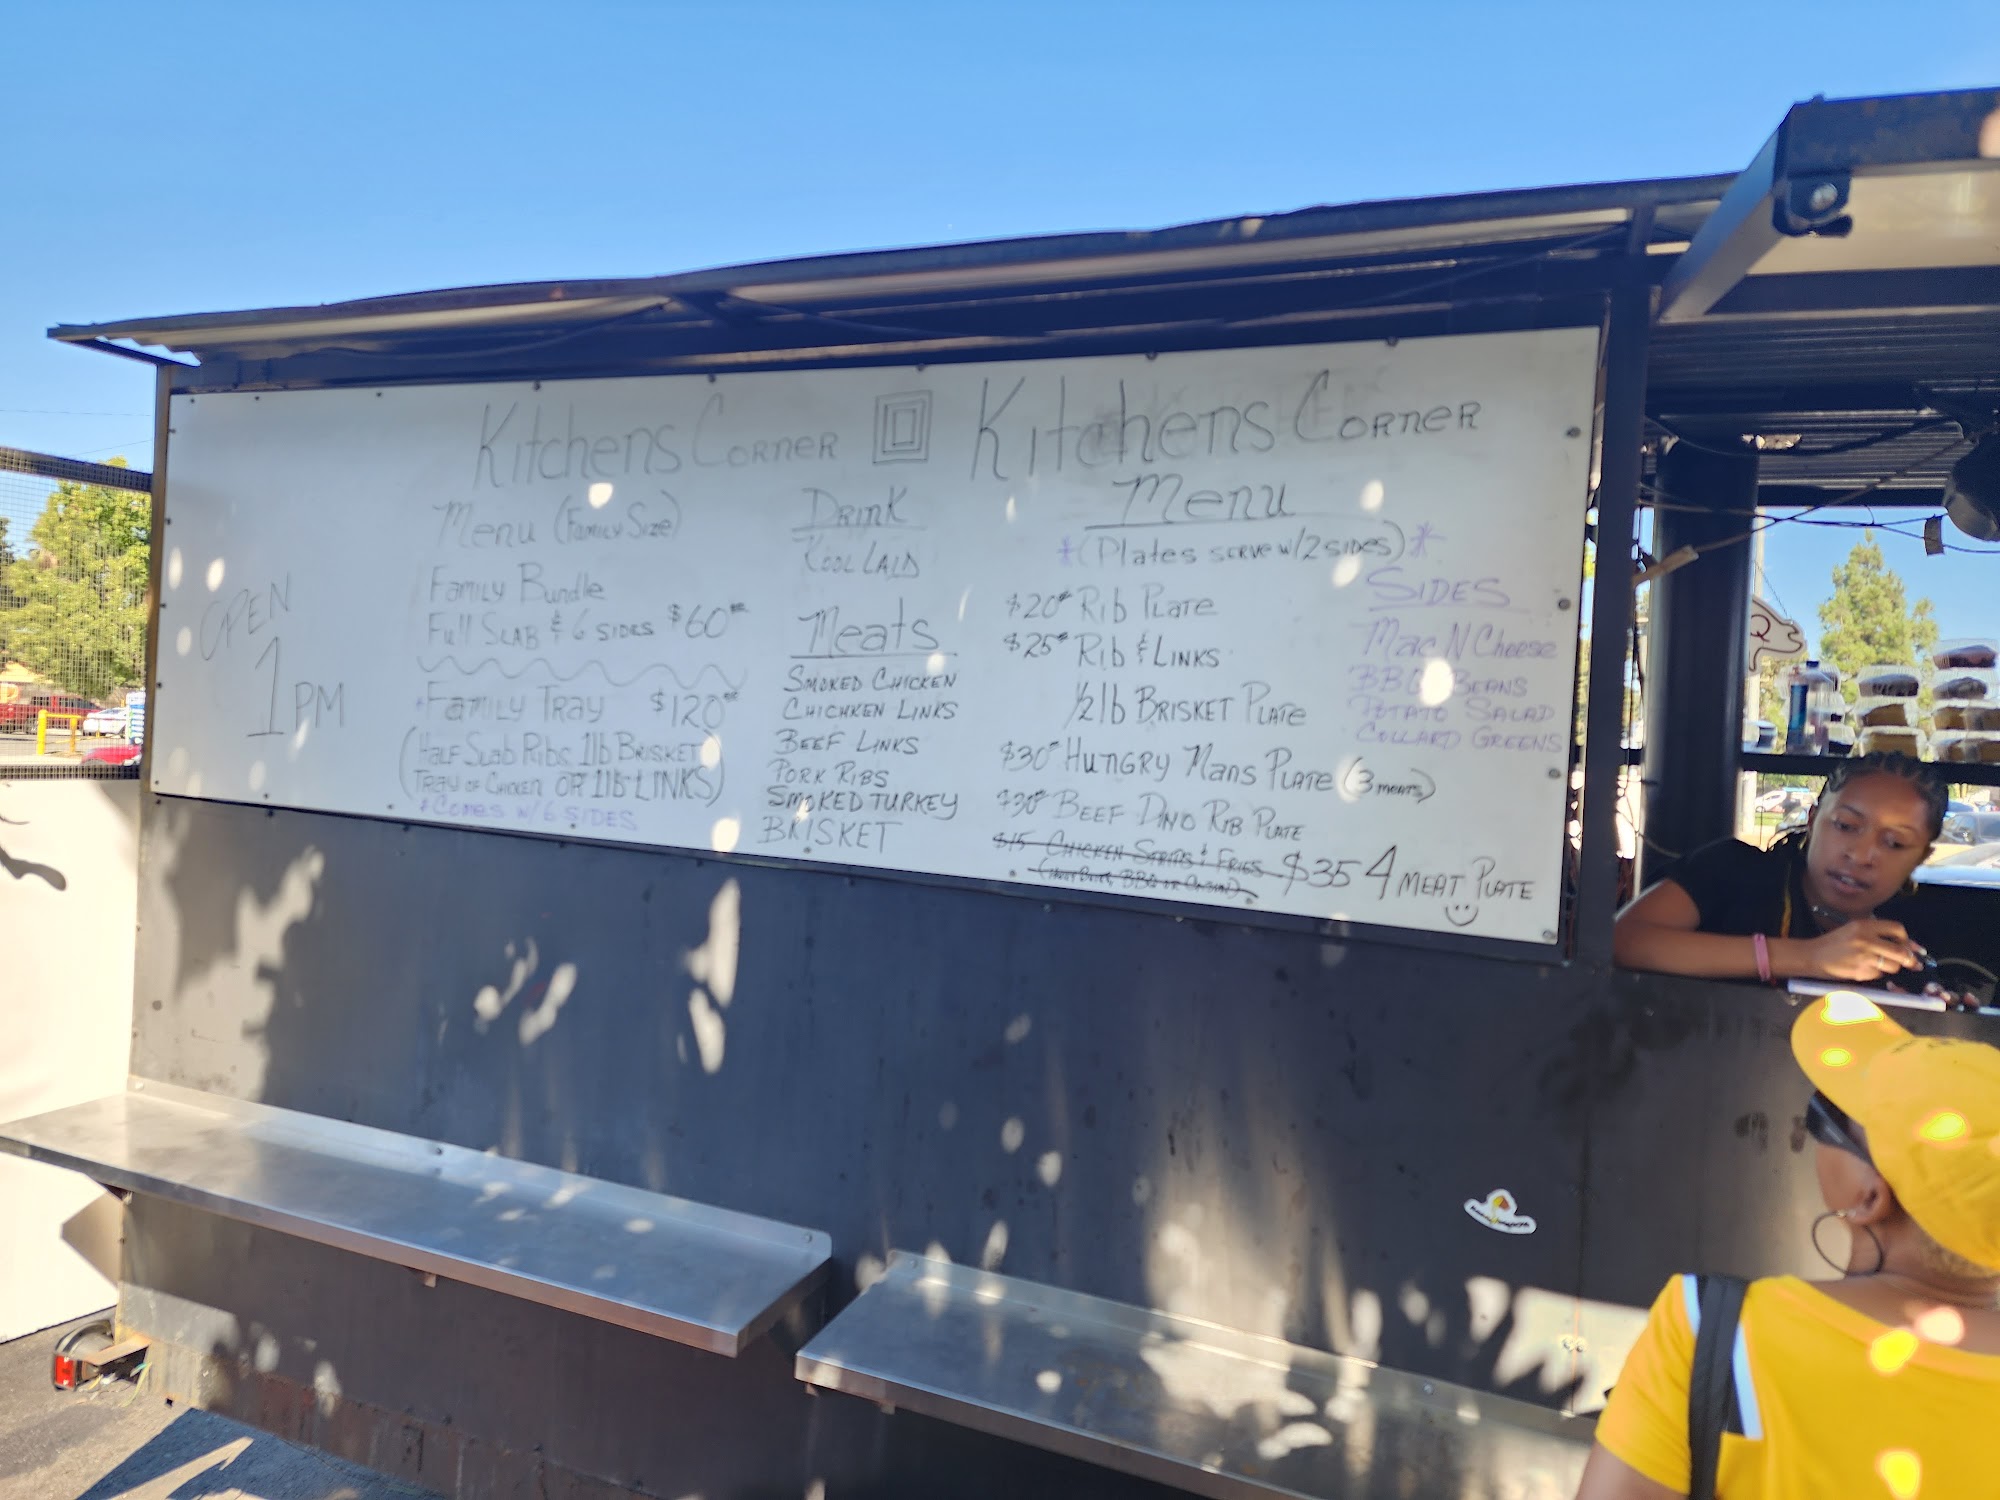 Kitchens Corner
Menu (Family Size)
Family Bundle
Full Slab & 6 sides $60
Family Tray $120
(Half Slab Ribs 1lb Brisket
Tray of Chicken OR 1lb LINKS)
*Comes w/ 6 SIDES
OPEN
1PM
Drink
Kool Laid
Meats
Smoked Chicken
Chichken Links
Beef Links
Pork Ribs
Smoked Turkey
BRISKET
Kitchens Corner
Menu
*(Plates serve w/2 sides)*
$20 Rib Plate
$25 Rib & Links
1/2 lb Brisket Plate
$30 Hungry Mans Plate (3 meats)
$30 Beef Dino Rib Plate
$15 Chicken Strips & Fries
$35 4 meat Plate
Sides
Mac N Cheese
BBQ Beans
Potato Salad
Collard Greens